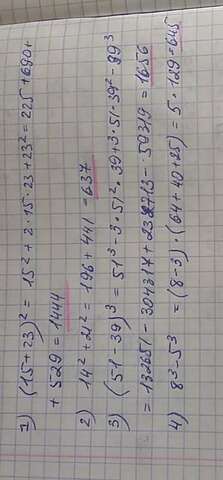 1) (15+23)² = 15² + 2·15·23 + 23² = 225 + 690 +
+ 529 = 1444
2) 14² + 21² = 196 + 441 = 637
3) (51-39)³ = 51³ - 3·51²·39 + 3·51·39² - 39³
= 132651 - 304317 + 232713 - 59319 = 1656
4) 8³-5³ = (8-3)·(64+40+25) = 5·129 = 645